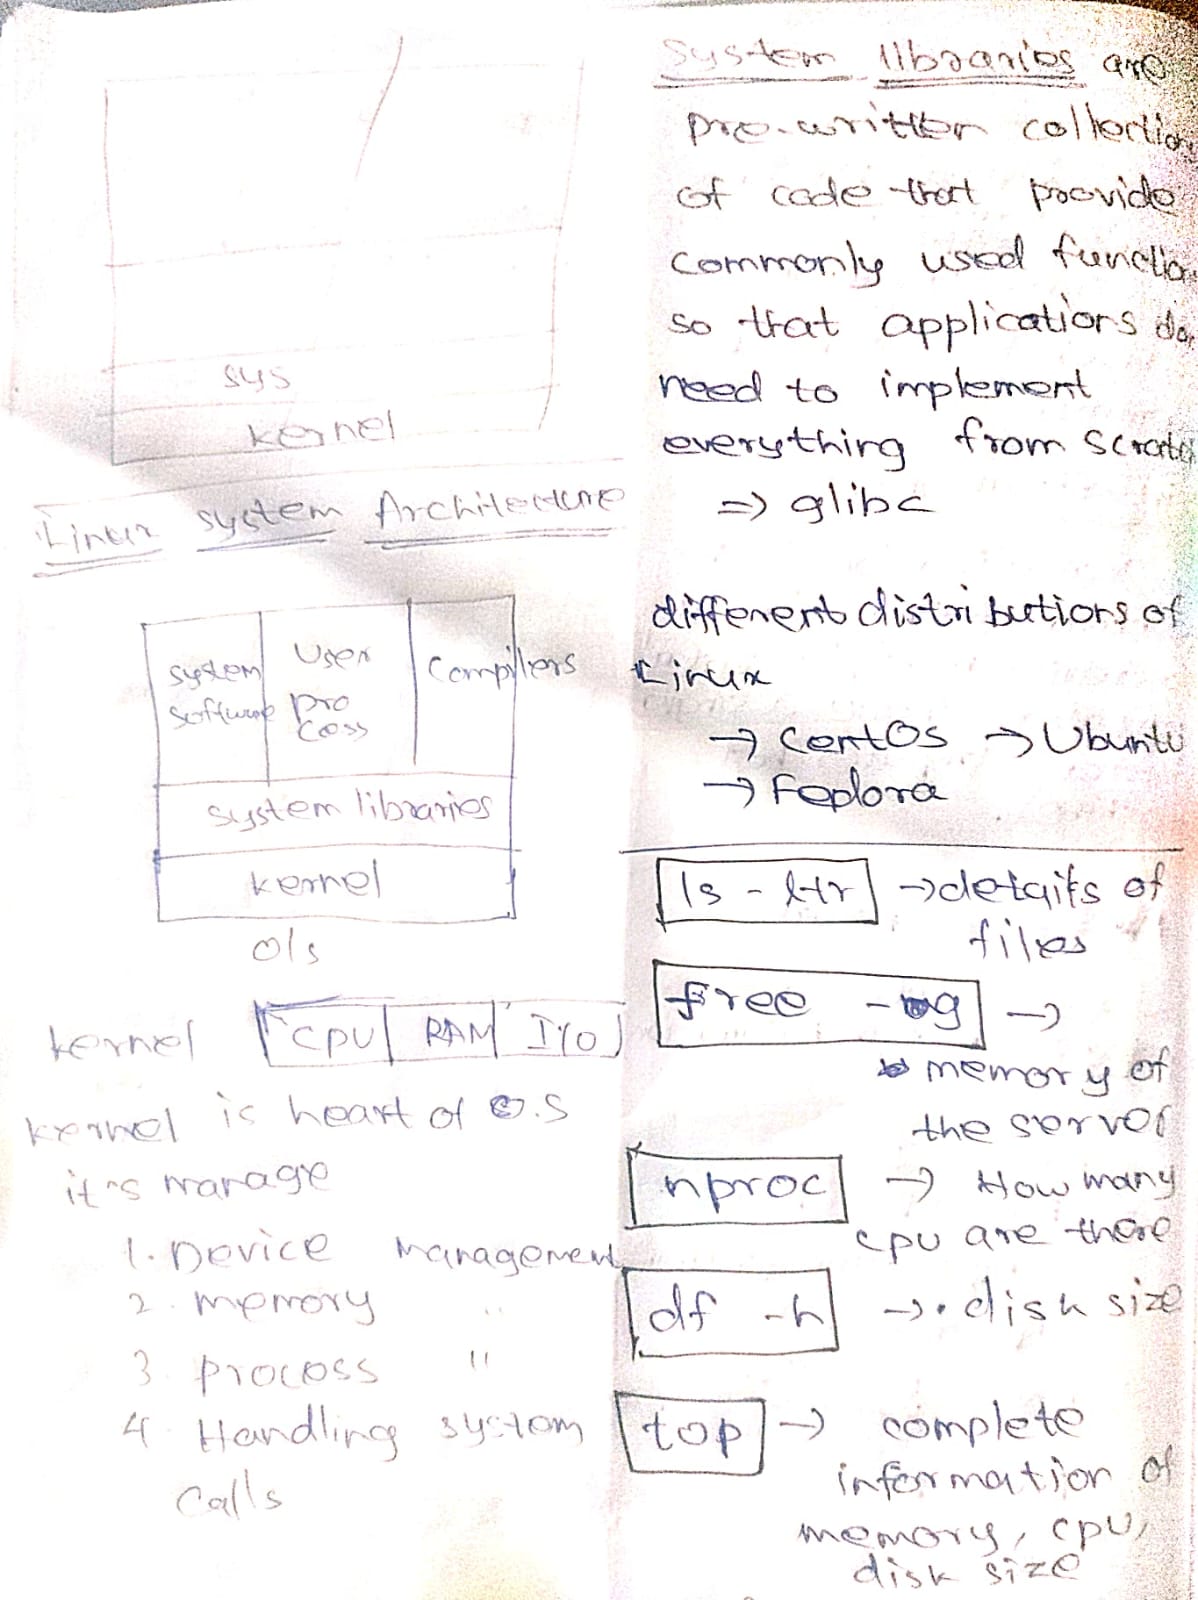 sys
kernel
Linux system Architecture
system software
User process
Compilers
system libraries
kernel
O/s
kernel CPU RAM I/O
kernel is heart of O.S
it's manage
1. Device management
2. memory "
3. process "
4. Handling system
calls
System libraries are
pre-written collection
of code that provide
commonly used function
so that applications don
need to implement
everything from scratch
=> glibc
different distributions of
Linux
→ CentOs → Ubuntu
→ Feplora
ls - ltr → details of
files
free - g →
memory of
the server
nproc → How many
cpu are there
df -h → disk size
top → complete
information of
memory, cpu,
disk size